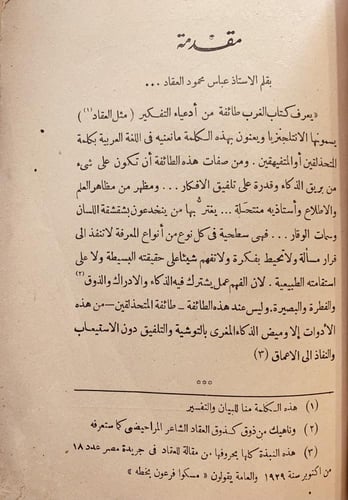 مقدمة
بقلم الاستاذ عباس محمود العقاد ...
« يعرف كتاب الغرب طائفة من أدعياء التفكير (مثل العقاد (١) )
يسمونها الانتلجنزيا ويعنون بهذه الكلمة مانعنيه فى اللغة العربية بكلمة
المتحذلقين أو المتفيهقين . ومن صفات هذه الطائفة أن تكون على شىء
من بريق الذكاء وقدرة على تلفيق الافكار ... ومظهر من مظاهر العلم
والاطلاع وأستاذيه منتحلة ... يغتر بها من ينخدعون بشقشقة اللسان
وسمات الوقار ... فهى سطحية فى كل نوع من أنواع المعرفة لاتنفذ الى
قرار مسألة ولاتحيط بفكرة ولاتفهم شيئا على حقيقته البسيطة ولا على
استقامته الطبيعية . لان الفهم عمل يشترك فيه الذكاء والادراك والذوق (٢)
والفطرة والبصيرة. وليس عند هذه الطائفة – طائفة المتحذلقين – من هذه
الأدوات إلا وميض الذكاء المغرى بالتوشية والتلفيق دون الاستيعاب
والنفاذ الى الاعماق (٣)
***
(١) هذه الكلمة منا للبيان والتفسير
(٢) وناهيك من ذوق كذوق العقاد الشاعر المراحيضى كما ستعرفه
(٣) هذه النبذة كلها بحروفها من مقالة للعقاد فى جريدة مصر عدد ١٨
من أكتوبر سنة ١٩٢٩ والعامة يقولون « مسكوا فرعون بخطه »